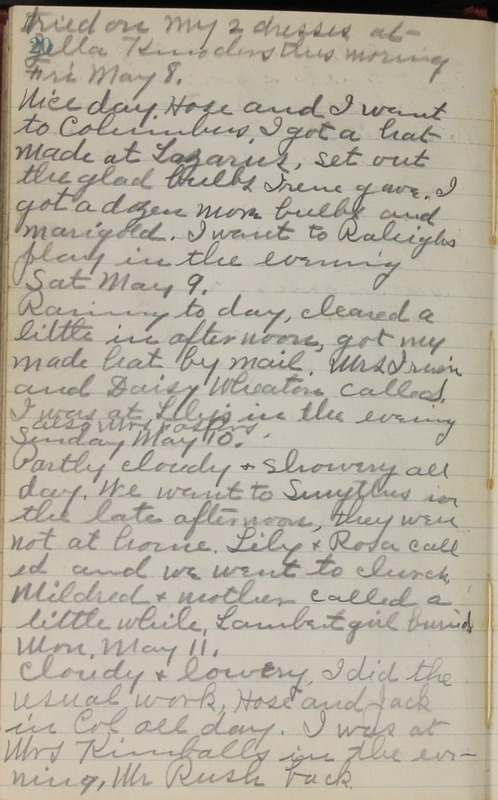 tried on my 2 dresses at
20
Zella Knoders this morning
Fri May 8.
Nice day. Hose and I want
to Columbus, I got a hat
made at Lazarus, set out
the glad bulbs Irene gave. I
got a dozen more bulbs and
marigold. I want to Raleighs
play in the evening
Sat May 9.
Rainny to day, cleared a
little in afternoon, got my
made hat by mail. Mrs Irwin
and Daisy Wheaton called.
I was at Lilys in the evening
also Mrs
Sunday May 10.
Partly cloudy + showery all
day. We want to Smythes in
the late afternoon, they were
not at home. Lily + Rosa call
ed and we went to church
Mildred + mother called a
little while, Lambert girl buried
Mon, May 11.
Cloudy + lowery, I did the
usual work, Hose and Jack
in Col. all day. I was at
Mrs Kimballs in the eve-
ning, Mr Rush back.